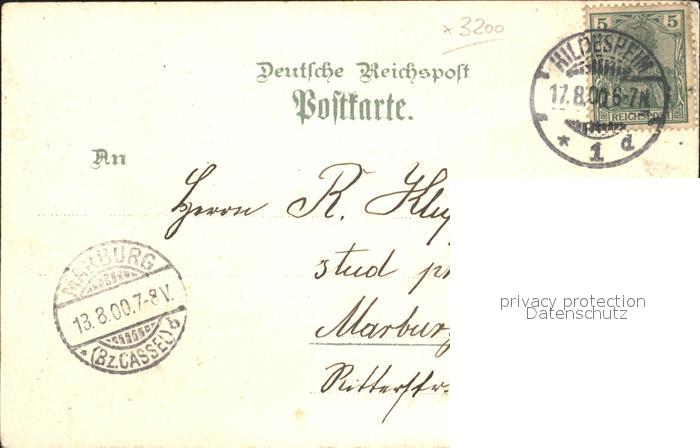 ×3200
5 5
REICHSPOST
HILDESHEIM
17.8.00.6-7N
* 1 d
Deutsche Reichspost
Postkarte.
An
Herrn R.
stud
Marburg
Ritterstr.
MARBURG
18.8.00.7-8V.
* (BZ.CASSEL) b
privacy protection
Datenschutz